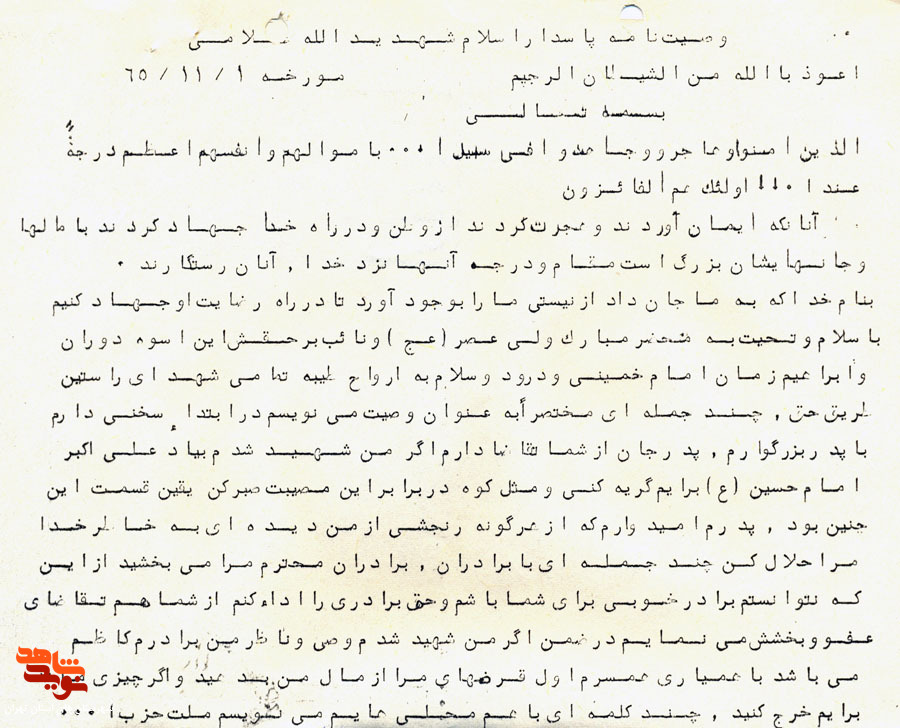 وصیت‌نامه پاسدار اسلام شهید یدالله غلامی
اعوذ باالله من الشیطان الرجیم مورخه ۶۵/۱۱/۱
بسمه تعالی
الذین امنوا و هاجرو و جاهدو ا فی سبیل ا ٠٠٠ با موالهم و أنفسهم اعظم درجةً
عند ا اولئك هم ألفائزون
آنانکه أیمان آوردند و هجرت کردند از وطن و در رأه خدأ جهاد کردند با مالها
و جانهایشان بزرگ است مقام و درجه آنها نزد خدا , آنان رستگارند ٠
بنام خدا که به ما جان داد از نیستی ما را بوجود آورد تا در راه رضایت او جهاد کنیم
با سلام و تحیت به محضر مبارك ولی عصر (عج ) و نائب بر حقش این اسوه دوران
و أبراهیم زمان امام خمینی و درود و سلام به ارواح طیبه تمامی شهدای راستین
طریق حق , چند جمله ای مختصرأ به عنوان وصیت می نویسم در ابتدا سخنی دارم
با پدر بزرگوارم , پدر جان از شما تقاضا دارم اگر من شهید شدم بیاد علی اکبر
امام حسین (ع) برایم گریه کنی و مثل کوه در برابر این مصیبت صبر کن یقین قسمت این
چنین بود , پدرم امید وارم که از هرگونه رنجشی از من دیده ای به خاطر خدا
مرا حلال کن چند جمله ای با برادران , برادران محترم مرا می بخشید از این
که نتوانستم برادر خوبی برای شما باشم و حق برادری را اداء کنم از شما هم تقاضای
عفو و بخشش می نمایم در ضمن اگر من شهید شدم وصی و ناظر من برادرم کاظم
می باشد با همیاری همسرم اول قرضهای مرا از مال من بدهید و اگر چیزی
برایم خرج کنید , چند کلمه ای با هم محلی هایم می نویسم ملت حزب ا ٠٠٠
شاهد
نوید